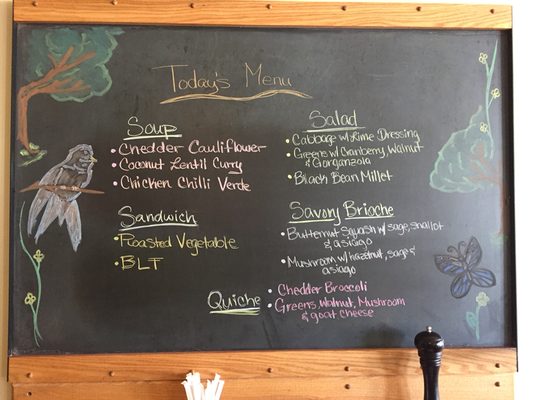 Today's Menu
Soup
• Chedder Cauliflower
• Coconut Lentil Curry
• Chicken Chilli Verde
Sandwich
• Roasted Vegetable
• BLT
Salad
• Cabbage w/ Lime Dressing
• Greens w/ Cranberry, Walnut
& Gorganzola
• Black Bean Millet
Savory Brioche
• Butternut Squash w/ sage, shallot
& asiago
• Mushroom w/ hazelnut, sage &
asiago
Quiche
• Chedder Broccoli
• Greens, Walnut, Mushroom
& goat cheese